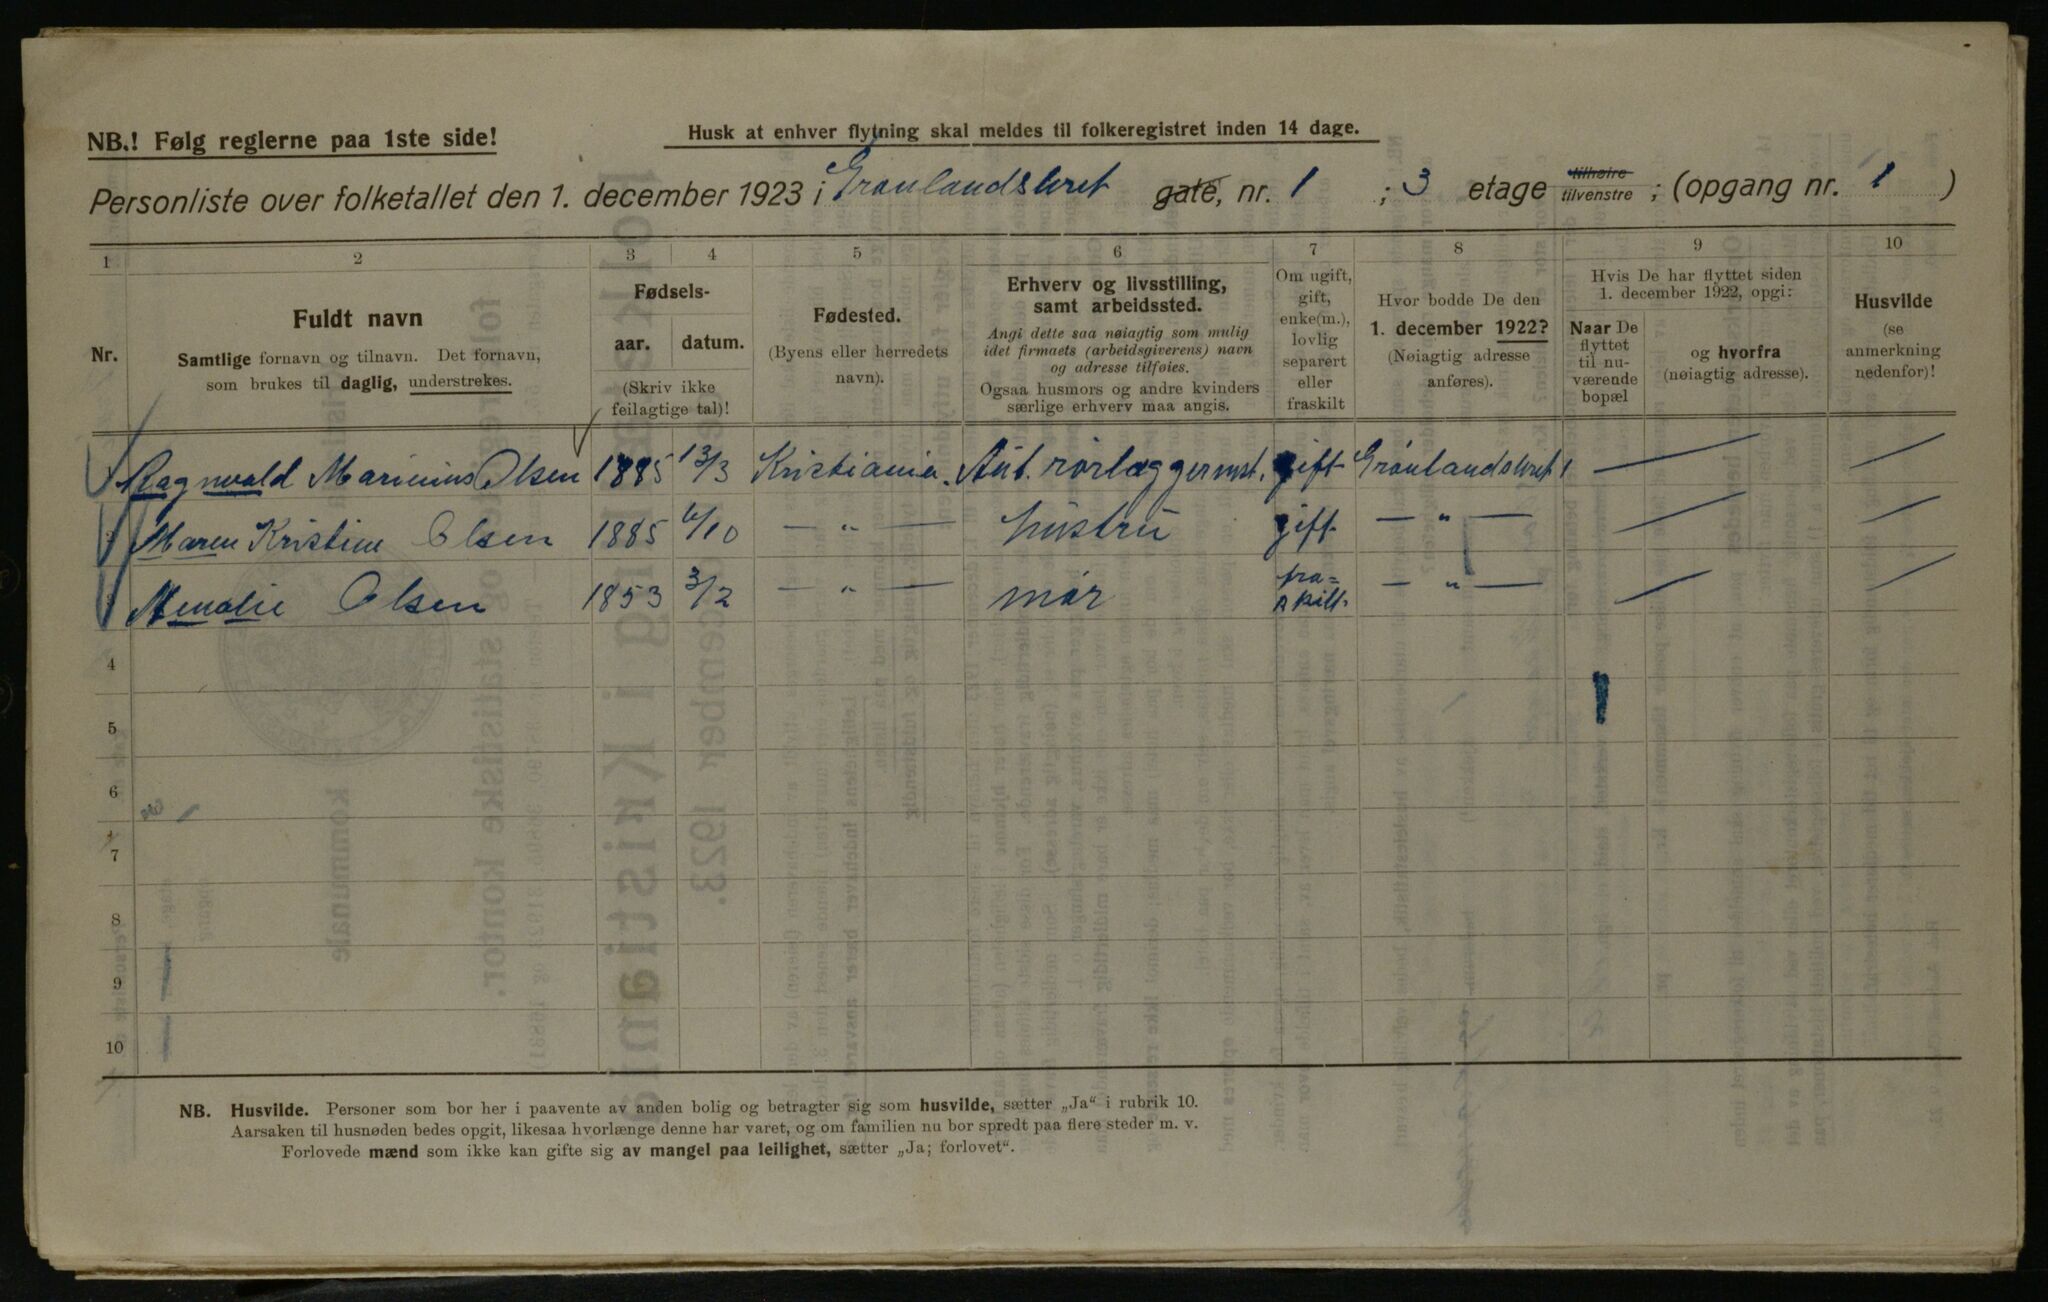 NB.! Følg reglerne paa 1ste side!
Husk at enhver flytning skal meldes til folkeregistret inden 14 dage.
Personliste over folketallet den 1. december 1923 i Grønlandsleret gate, nr. 1 ; 3 etage tilhøire tilvenstre ; (opgang nr. 1 )
1 2 3 4 5 6 7 8 9 10
Nr.
Fuldt navn
Samtlige fornavn og tilnavn. Det fornavn,
som brukes til daglig, understrekes.
Fødsels-
aar. datum.
(Skriv ikke
feilagtige tal)!
Fødested.
(Byens eller herredets
navn).
Erhverv og livsstilling,
samt arbeidssted.
Angi dette saa nøiagtig som mulig
idet firmaets (arbeidsgiverens) navn
og adresse tilføies.
Ogsaa husmors og andre kvinders
særlige erhverv maa angis.
Om ugift,
gift,
enke(m.),
lovlig
separert
eller
fraskilt
Hvor bodde De den
1. december 1922?
(Nøiagtig adresse
anføres).
Hvis De har flyttet siden
1. december 1922, opgi:
Naar De
flyttet
til nu-
værende
bopæl
og hvorfra
(nøiagtig adresse).
Husvilde
(se
anmerkning
nedenfor)!
Ragnvald Marinius Olsen 1885 13/3 Kristiania. Aut. rørlæggermst. gift Grønlandsleret 1 — —
2 Maren Kristine Olsen 1885 6/10 — " — hustru gift — " — — —
3 Amalie Olsen 1853 3/2 — " — mor fra=
skilt. — " — — —
4
5
6
7
8
9
10
NB. Husvilde. Personer som bor her i paavente av anden bolig og betragter sig som husvilde, sætter „Ja“ i rubrik 10.
Aarsaken til husnøden bedes opgit, likesaa hvorlænge denne har varet, og om familien nu bor spredt paa flere steder m. v.
Forlovede mænd som ikke kan gifte sig av mangel paa leilighet, sætter „Ja; forlovet“.